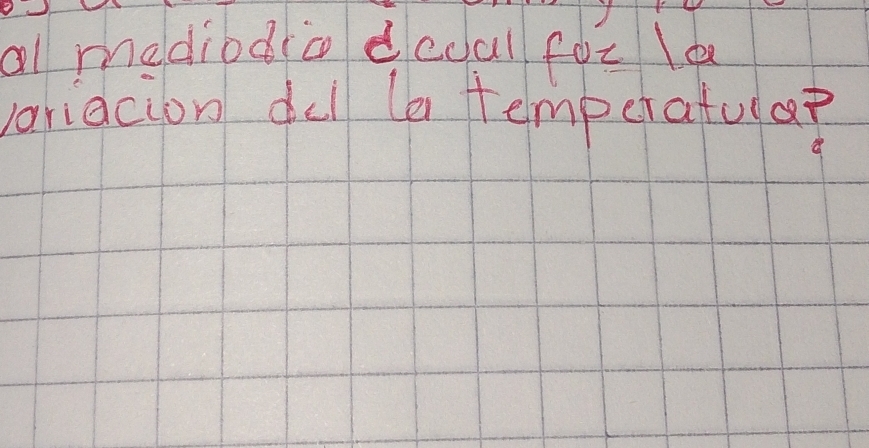 al mediodia dcual fue la
variacion del la temperatura?